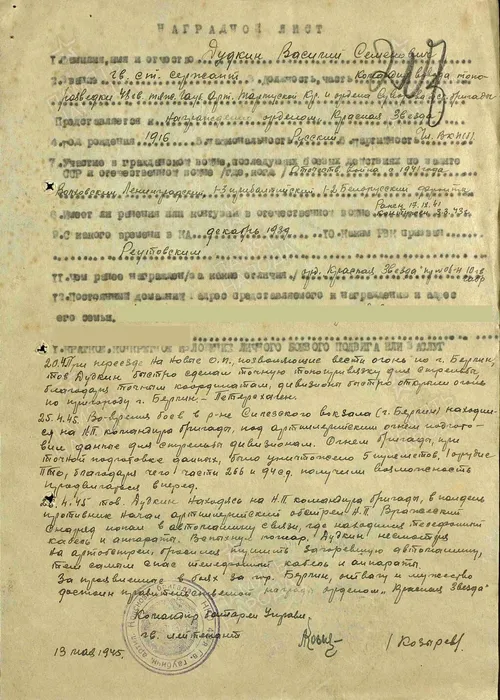 НАГРАДНОЙ ЛИСТ
1. Фамилия, имя и отчество Дудкин Василий Семенович
2. Звание гв. ст. сержант 3. Должность, часть Командир взвода топо-
разведки
Представляется к награждению орденом "Красная Звезда"
4. Год рождения 1916 5. Национальность Русский 6. Партийность Чл. ВКП(б)
7. Участие в гражданской войне, последующих боевых действиях по защите
СССР и отечественной войне /где, когда/ Отечеств. война с 1941 года
Волховский, Ленинградский, 1-3 Прибалтийский, 1-2 Белорусский фронта
8. Имеет ли ранения или контузии в отечественной войне Ранен 17.12.41 контужен 3.3.43г.
9. С какого времени в КА декабрь 1939 10. Каким РВК призван
Реутовским
11. Чем ранее награжден/за какие отличия/ орд. "Красная Звезда"
12. Постоянный домашний адрес представляемого к награждению и адрес
его семьи.
1. КРАТКОЕ, КОНКРЕТНОЕ ИЗЛОЖЕНИЕ ЛИЧНОГО БОЕВОГО ПОДВИГА ИЛИ ЗАСЛУГ
При переезде на новые О.П. позволяющие вести огонь по г. Берлин
тов Дудкин быстро сделал точную топопривязку для стрельбы,
благодаря точным координатам, дивизионы быстро открыли огонь
по пригороду г. Берлин -
25.4.45. Во время боев в р-не Силезского вокзала (г. Берлин) находи-
лся на Н.П. командира бригады, под артиллерийским огнем подгото-
вил данные для стрельбы дивизионам. Огнем бригады, при
точной подготовке данных, было уничтожено 5 пулеметов, 1 орудие
ПТО, благодаря чего части 266 и 94 сд. получили возможность
продвигаться вперед.
26.4.45 тов. Дудкин находясь на Н.П. командира бригады, в полдень
противник начал артиллерийский обстрел Н.П. Вражеский
снаряд попал в автомашину связи, где находился телефонный
кабель и аппараты. Вспыхнул пожар, Дудкин несмотря
на артобстрел, бросился тушить загоревшую автомашину,
тем самым спас телефонный кабель и аппараты.
За проявленное в боях за гор. Берлин, отвагу и мужество
достоин правительственной награды орденом "Красная Звезда"
Командир батареи управл.
гв. лейтенант /Козырев/
13 мая 1945.